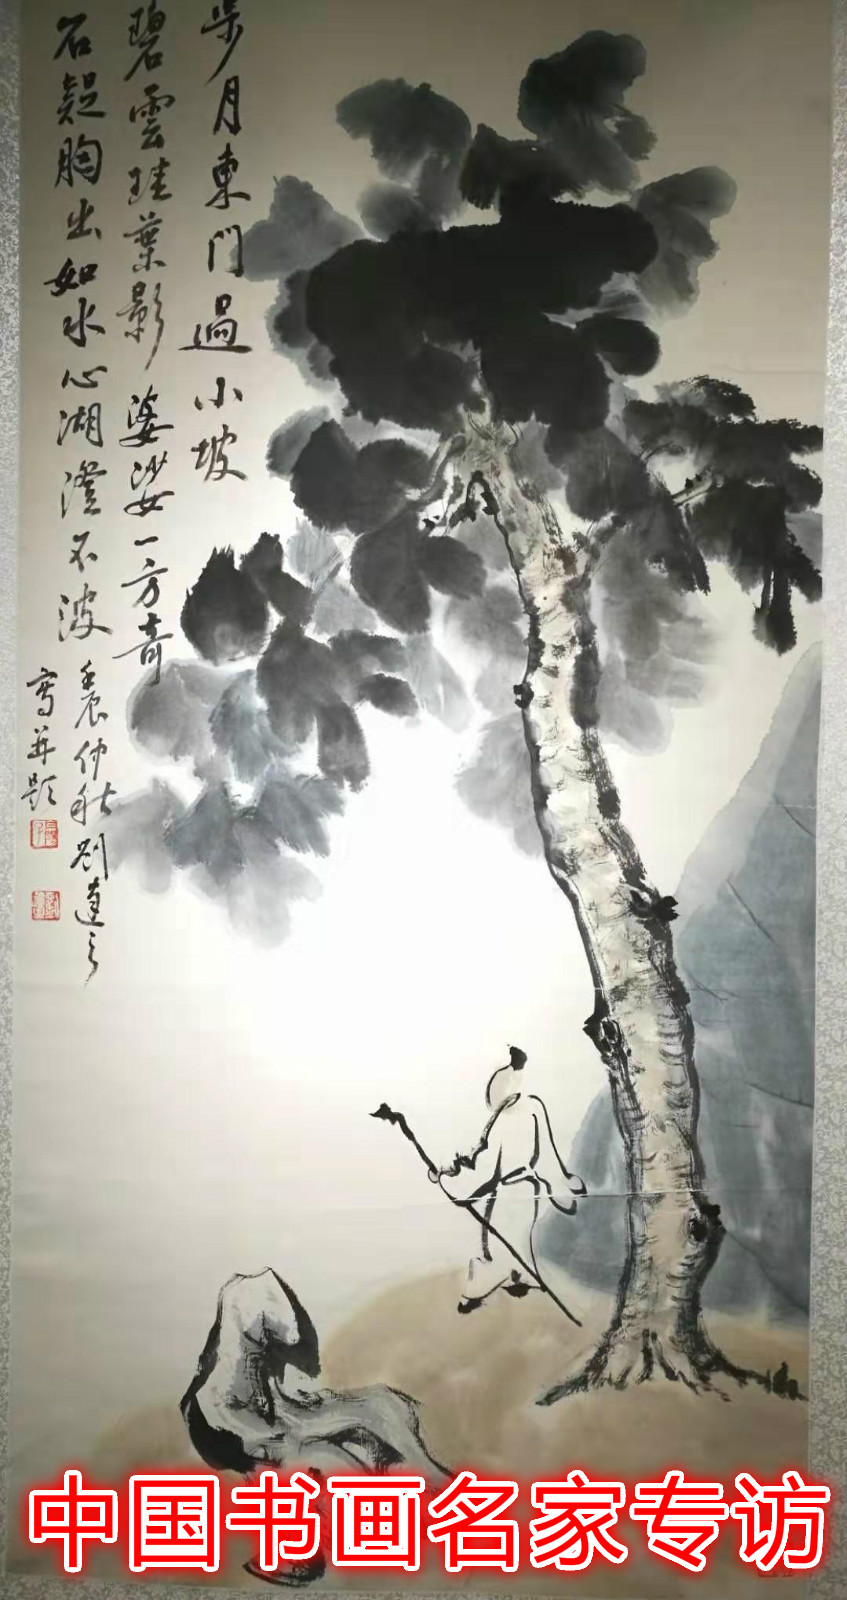 步月東門過小坡
碧雲珪葉影婆娑一方奇
石疑胸出如水心湖澄不波
壬辰仲秋劉達之
寫并題
中国书画名家专访